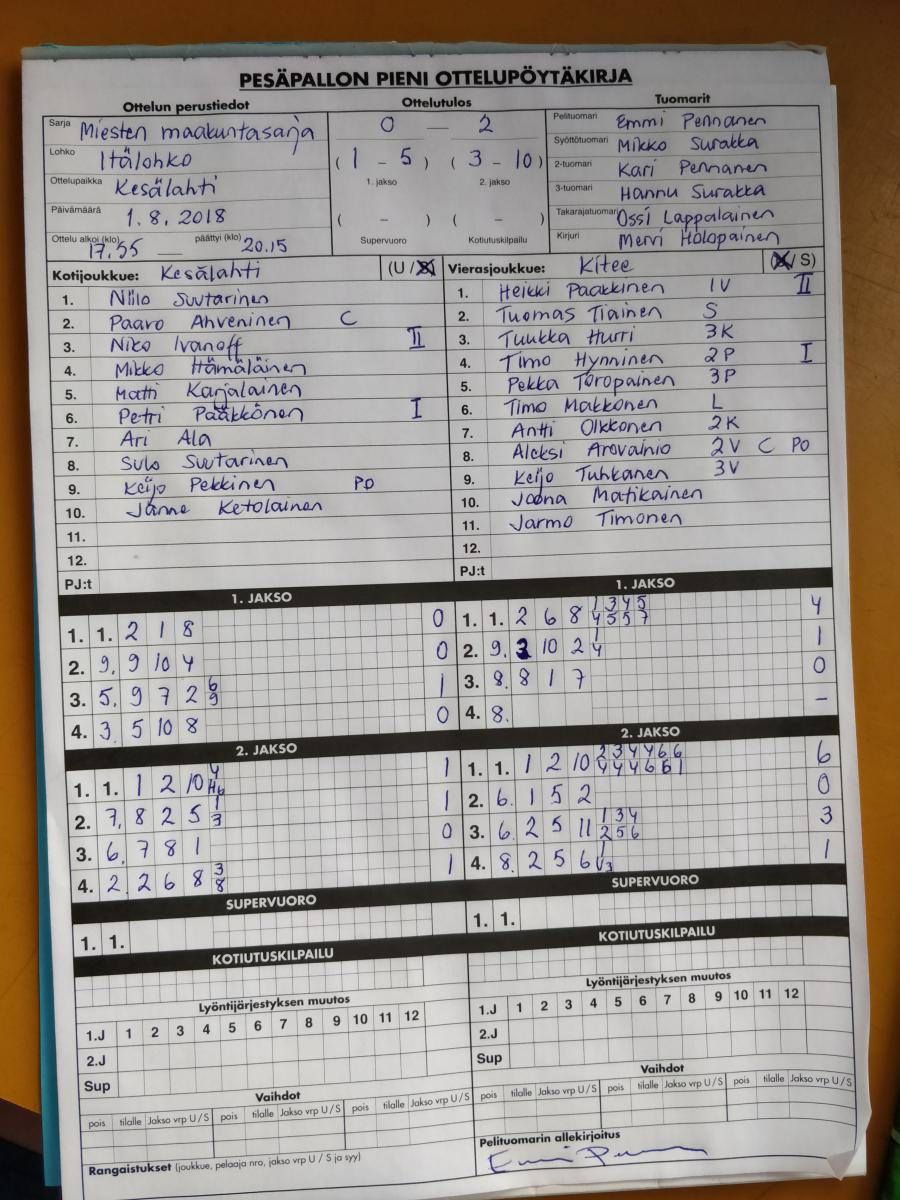 PESÄPALLON PIENI OTTELUPÖYTÄKIRJA
Ottelun perustiedot Ottelutulos Tuomarit
Sarja Miesten maakuntasarja
Lohko Itälohko
Ottelupaikka Kesälahti
Päivämäärä 1.8.2018
Ottelu alkoi (klo) 17.55 päättyi (klo) 20.15
0 — 2
(1 - 5) (3 - 10)
1. jakso 2. jakso
( - ) ( - )
Supervuoro Kotiutuskilpailu
Pelituomari Emmi Pennanen
Syöttötuomari Mikko Surakka
2-tuomari Kari Pennanen
3-tuomari Hannu Surakka
Takarajatuomari Ossi Lappalainen
Kirjuri Mervi Holopainen
Kotijoukkue: Kesälahti (U / S)
1. Niilo Suutarinen
2. Paavo Ahveninen C
3. Niko Ivanoff II
4. Mikko Hämäläinen
5. Matti Karjalainen
6. Petri Pääkkönen I
7. Ari Ala
8. Sulo Suutarinen
9. Keijo Pekkinen PO
10. Janne Ketolainen
11.
12.
PJ:t
Vierasjoukkue: Kitee (U / S)
1. Heikki Paakkinen 1V II
2. Tuomas Tiainen S
3. Tuukka Hurri 3K
4. Timo Hynninen 2P I
5. Pekka Toropainen 3P
6. Timo Makkonen L
7. Antti Olkkonen 2K
8. Aleksi Arovainio 2V C PO
9. Keijo Tuhkanen 3V
10. Joona Matikainen
11. Jarmo Timonen
12.
PJ:t
1. JAKSO
1. 1. 2 1 8 0
2. 9. 9 10 4 0
3. 5. 9 7 2 6 9 1
4. 3. 5 10 8 0
1. JAKSO
1. 1. 2 6 8 1 3 4 5 4
4 5 5 7
2. 9. 3 10 2 1 4 1
3. 8. 8 1 7 0
4. 8. –
2. JAKSO
1. 1. 1 2 10 4 1
2. 7. 8 2 5 1 3 1
3. 6. 7 8 1 0
4. 2. 2 6 8 3 8 1
2. JAKSO
1. 1. 1 2 10 2 3 4 4 6 6 6
4 4 4 6 6 1
2. 6. 1 5 2 0
3. 6. 2 5 11 1 3 4 3
2 5 6
4. 8. 2 5 6 1 3 1
SUPERVUORO
1. 1.
SUPERVUORO
1. 1.
KOTIUTUSKILPAILU
KOTIUTUSKILPAILU
Lyöntijärjestyksen muutos
1.J 1 2 3 4 5 6 7 8 9 10 11 12
2.J
Sup
Lyöntijärjestyksen muutos
1.J 1 2 3 4 5 6 7 8 9 10 11 12
2.J
Sup
Vaihdot
pois tilalle Jakso vrp U / S pois tilalle Jakso vrp U / S pois tilalle Jakso vrp U / S
Vaihdot
pois tilalle Jakso vrp U / S pois tilalle Jakso vrp U / S pois tilalle Jakso vrp U / S
Rangaistukset (joukkue, pelaaja nro, jakso vrp U / S ja syy)
Pelituomarin allekirjoitus